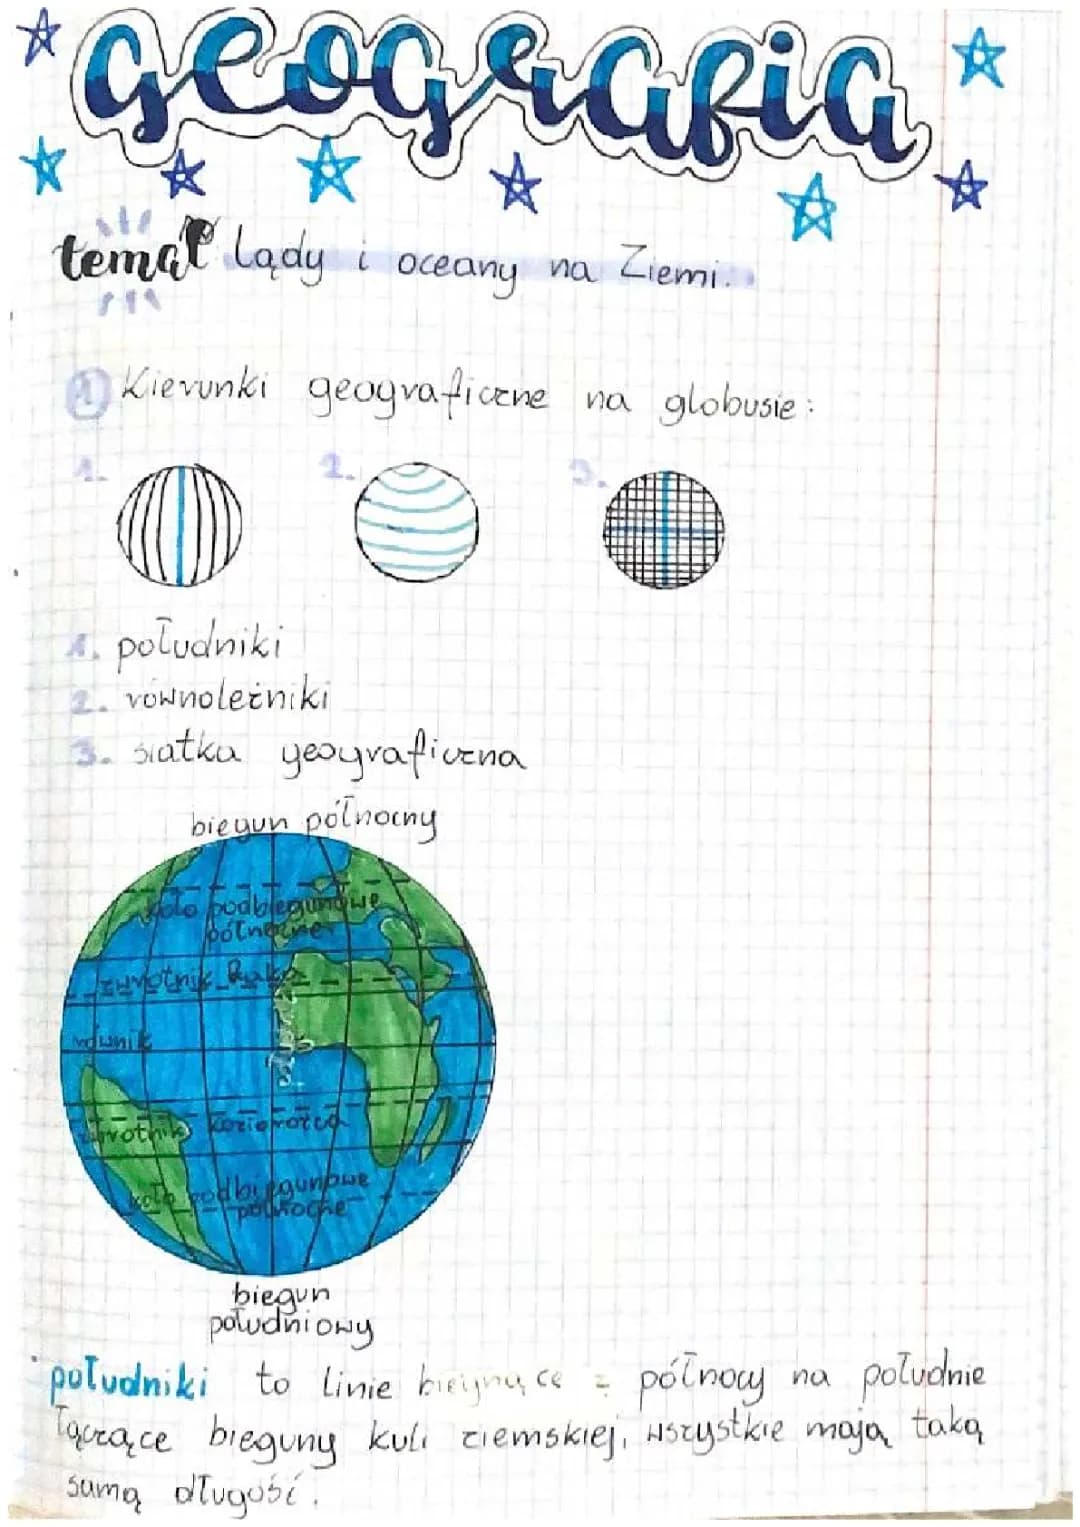 geografia
temat Lądy i oceany na Ziemi.
1 Kierunki geograficzne na globusie:
1. 2. 3.
1. południki
2. równoleżniki
3. siatka geograficzna
biegun północny
koło podbiegunowe
północne
zwrotnik Raka
równik
zwrotnik Koziorożca
koło podbiegunowe
północne
biegun
południowy
południki to linie biegnące z północy na południe
łączące bieguny kuli ziemskiej, wszystkie mają taką
samą długość.